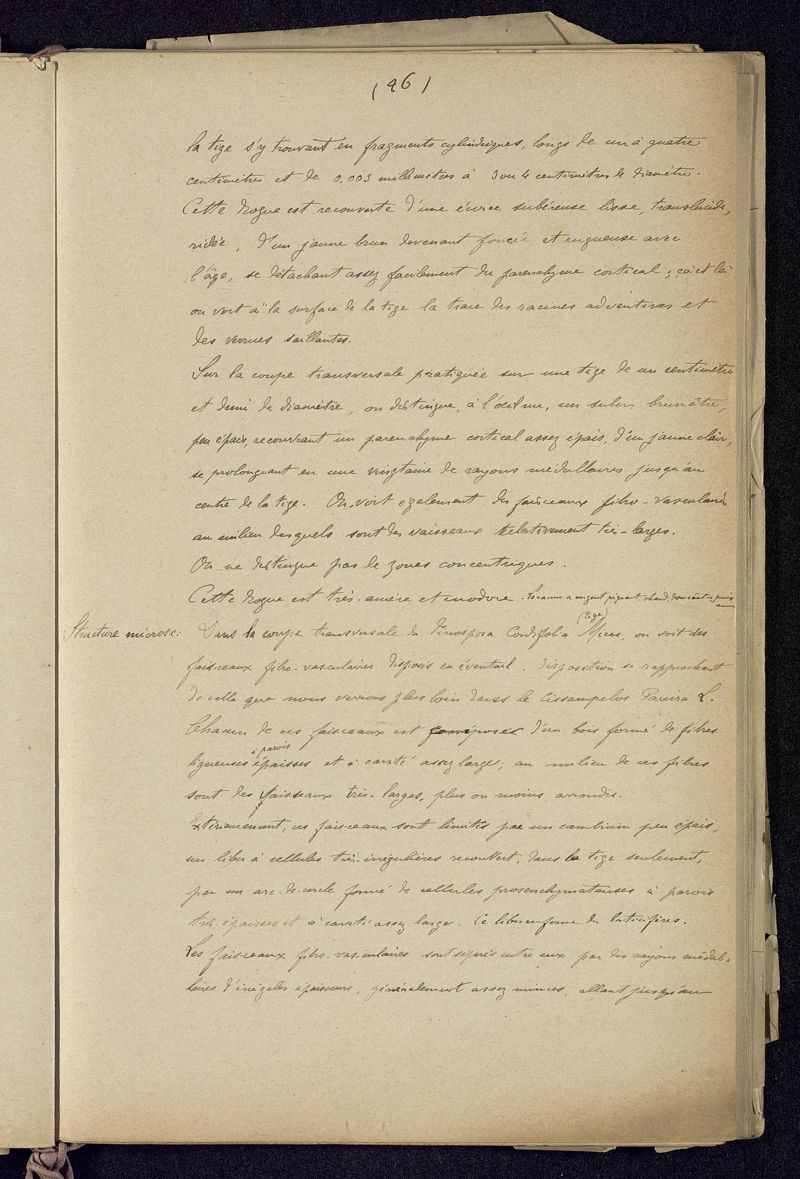 (26)
la tige s'y trouvant en fragments cylindriques, longs de un à quatre
centimètres et de 0,003 millimètres à 3 ou 4 centimètres de diamètre.
Cette drogue est recouverte d'une écorce subéreuse lisse, translucide,
ridée, d'un jaune brun devenant foncée et rugueuse avec
l'âge, se détachant assez facilement du parenchyme cortical ; çà et là
on voit à la surface de la tige la trace des racines adventives et
des verrues saillantes.
Sur la coupe transversale pratiquée sur une tige de un centimètre
et demi de diamètre, on distingue, à l'oeil nu, un suber brunâtre,
peu épais, recouvrant un parenchyme cortical assez épais, d'un jaune clair,
se prolongeant en une vingtaine de rayons médullaires jusqu'au
centre de la tige. On voit également des faisceaux fibro-vasculaires
au milieu desquels sont des vaisseaux relativement très-larges.
On ne distingue pas de zones concentriques.
Cette drogue est très-amère et inodore.
Structure microsc: Dans la coupe transversale du Tinospora Cordifolia Miers, (tige) on voit des
faisceaux fibro-vasculaires disposés en éventail, disposition se rapprochant
de celle que nous verrons plus loin dans le Cissampelos Pareira L.
Chacun de ces faisceaux est composé d'un bois formé de fibres
ligneuses à parois épaisses et à cavité assez large ; au milieu de ces fibres
sont des vaisseaux très-larges, plus ou moins arrondis.
Extérieurement, ces faisceaux sont limités par un cambium peu épais,
un liber à cellules très-irrégulières recouvert, dans la tige seulement,
par un arc-de-cercle formé de cellules prosenchymateuses à parois
très-épaisses et à cavité assez large. Ce liber enferme des laticifères.
Les faisceaux fibro-vasculaires sont séparés entre eux par des rayons médul-
laires d'inégales épaisseurs, généralement assez minces, allant jusqu'au